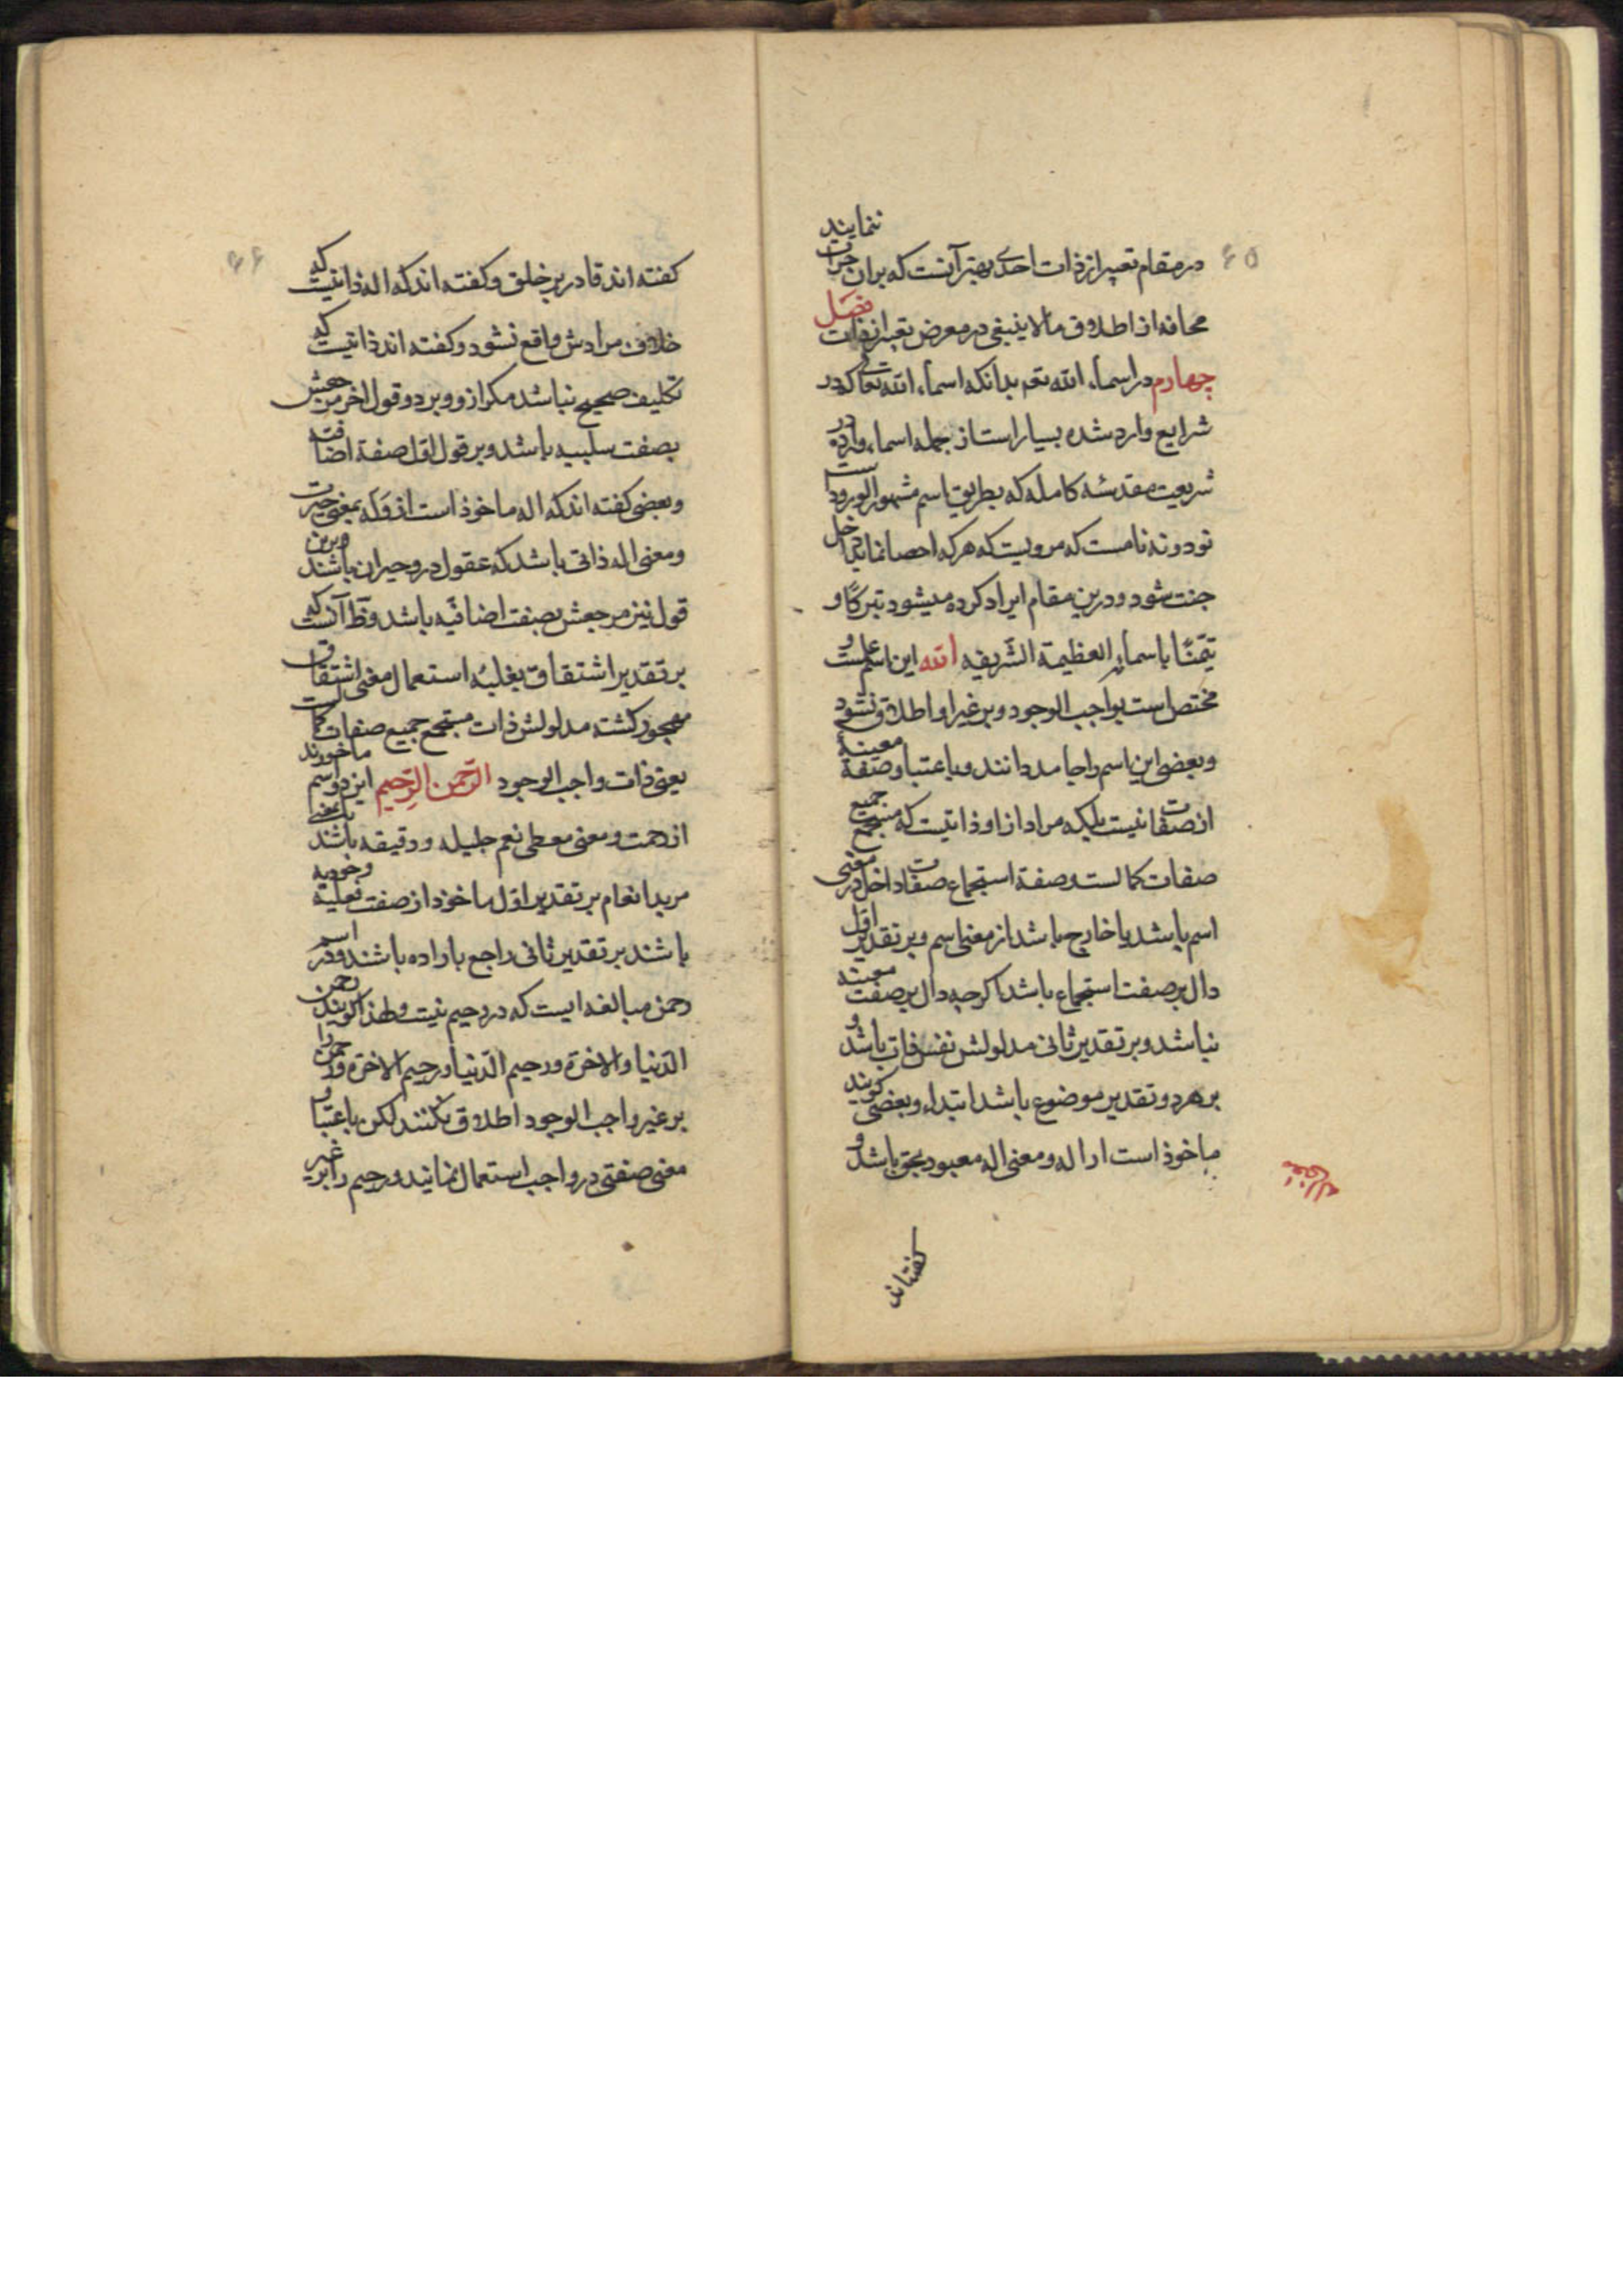 ۶۵
در مقام تعبیر از ذات احدی بهتر آنست که بر ان جرات ننمایند
مخافه از اطلاق ما لا ینبغی در معرض تعبیر از ذات فصل
چهارم در اسماء الله تعه بدانکه اسماء الله تعالی که در
شرایع وارد شده بسیار است از جمله اسماء وارده در
شریعت مقدسه کامله که بطریق اسم مشهور الورود است
نود و نه نامست که مرویست که هر که احصا نماید داخل
جنت شود و درین مقام ایراد کرده میشود تبرکًا و
تیمّنًا باسمائه العظیمة الشریفه الله این اسم علمست و
مختص است بواجب الوجود و بر غیر او اطلاق نشود
و بعضی این اسم را جامد دانند و باعتبار صفة معینهٔ
از صفات نیست بلکه مراد از او ذاتیست که مستجمع جمیع
صفات کمالست و صفة استجماع صفات داخل در معنی
اسم باشد یا خارج باشد از معنی اسم و بر تقدیر اول
دال بر صفت استجماع باشد اکرچه دال بر صفت معینه
نباشد و بر تقدیر ثانی مدلولش نفس ذات باشد و
بر هر دو تقدیر موضوع باشد ابتداء و بعضی کویند
ماخوذ است از اله و معنی اله معبود بحق باشد و
معنی اله
کفته اند
۶۶
کفته اند قادر بر خلق و کفته اند که اله ذاتیست که
خلاف مرادش واقع نشود و کفته اند ذاتیست که
تکلیف صحیح نباشد مکر از و و بر دو قول اخر مرجعش
بصفت سلبیه باشد و بر قول اول صفة اضافیه
و بعضی کفته اند که اله ماخوذ است از وَلَه بمعنی حیرت
و معنی اله ذاتی باشد که عقول در و حیران باشند و برین
قول نیز مرجعش بصفت اضافیّه باشد و ظ آنست که
بر تقدیر اشتقاق بغلبهٔ استعمال معنی اشتقاق
مهجور کشته مدلولش ذات مستجمع جمیع صفات کمالست
یعنی ذات واجب الوجود الرّحمن الرّحیم این دو اسم ماخوذند
از رحمت و معنی معطی نعم جلیله و دقیقه باشند یا بمعنی
مرید انعام بر تقدیر اوّل ماخوذ از صفت فعلیة وجودیه
باشند بر تقدیر ثانی راجع باراده باشند و در اسم
رحمن مبالغه ایست که در رحیم نیست و لهذا کویند رحمن
الدّنیا و الاخرة و رحیم الدّنیا و رحیم الاخرة و رحمن را
بر غیر واجب الوجود اطلاق نکنند لکن باعتبار
معنی صفتی در واجب استعمال نمایند و رحیم را بر غیر